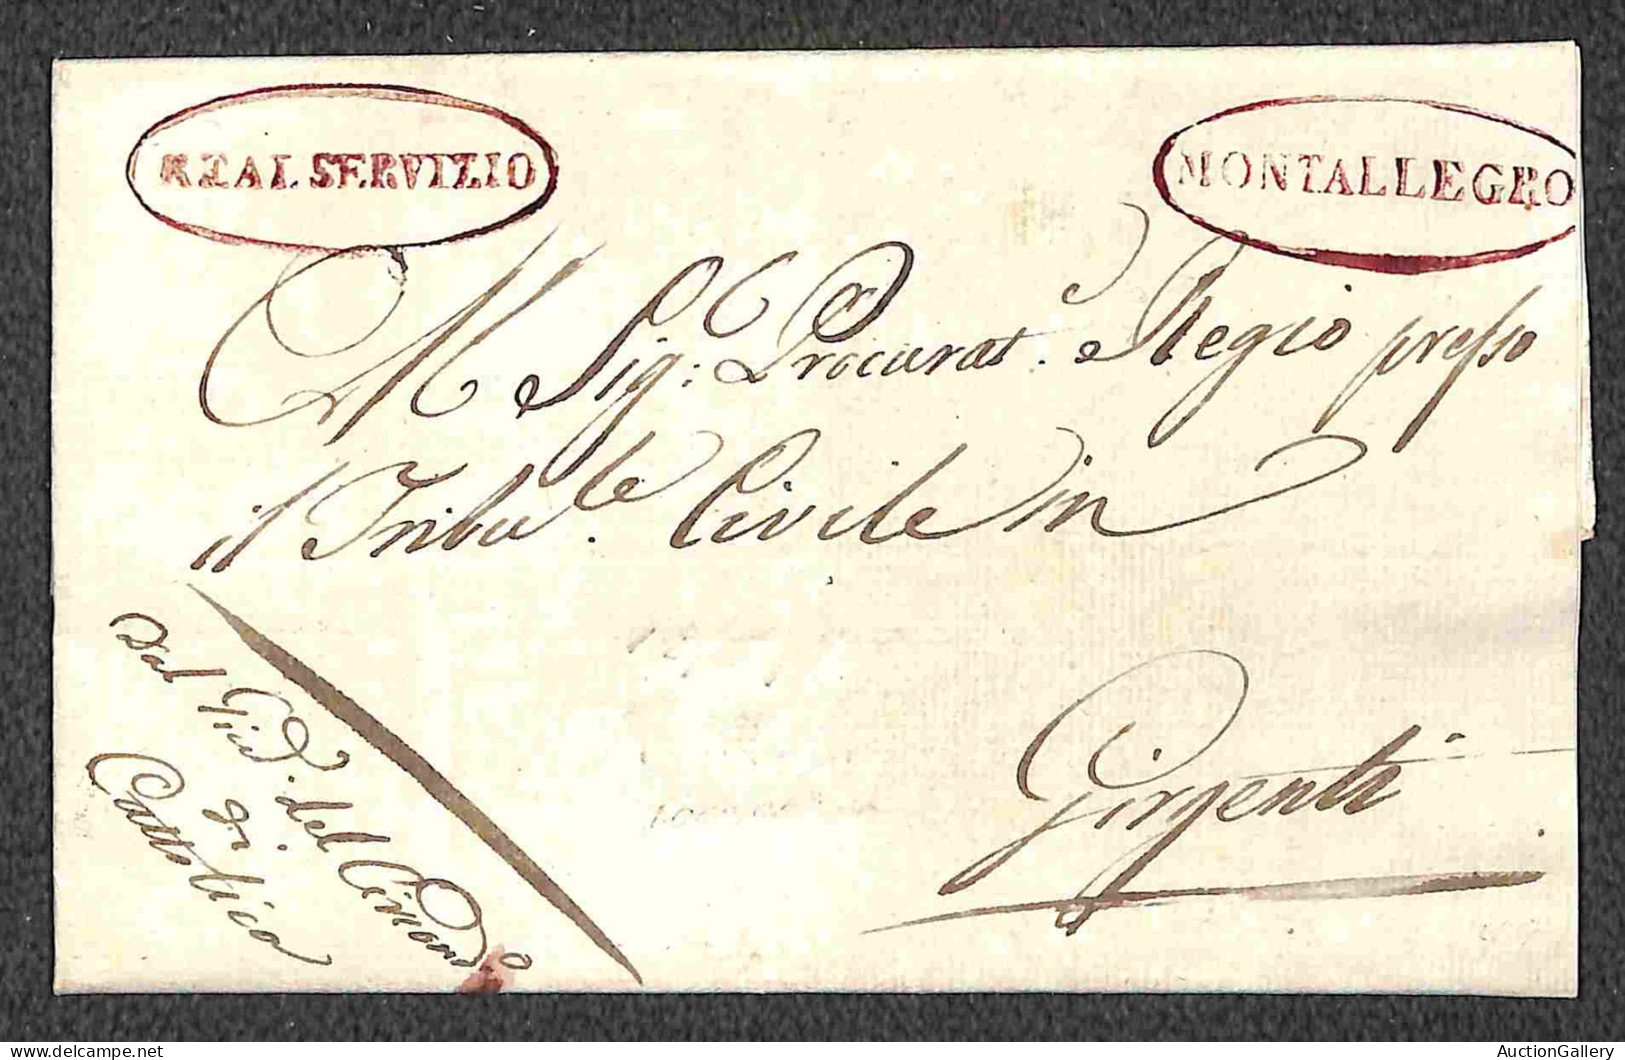 REAL SERVIZIO
MONTALLEGRO
Al Sig: Procurat. Regio presso
il Tribu.le Civile in
Girgenti
Dal Giud. del Circond.o
di
Cattolica
delcampe.net
AuctionGallery